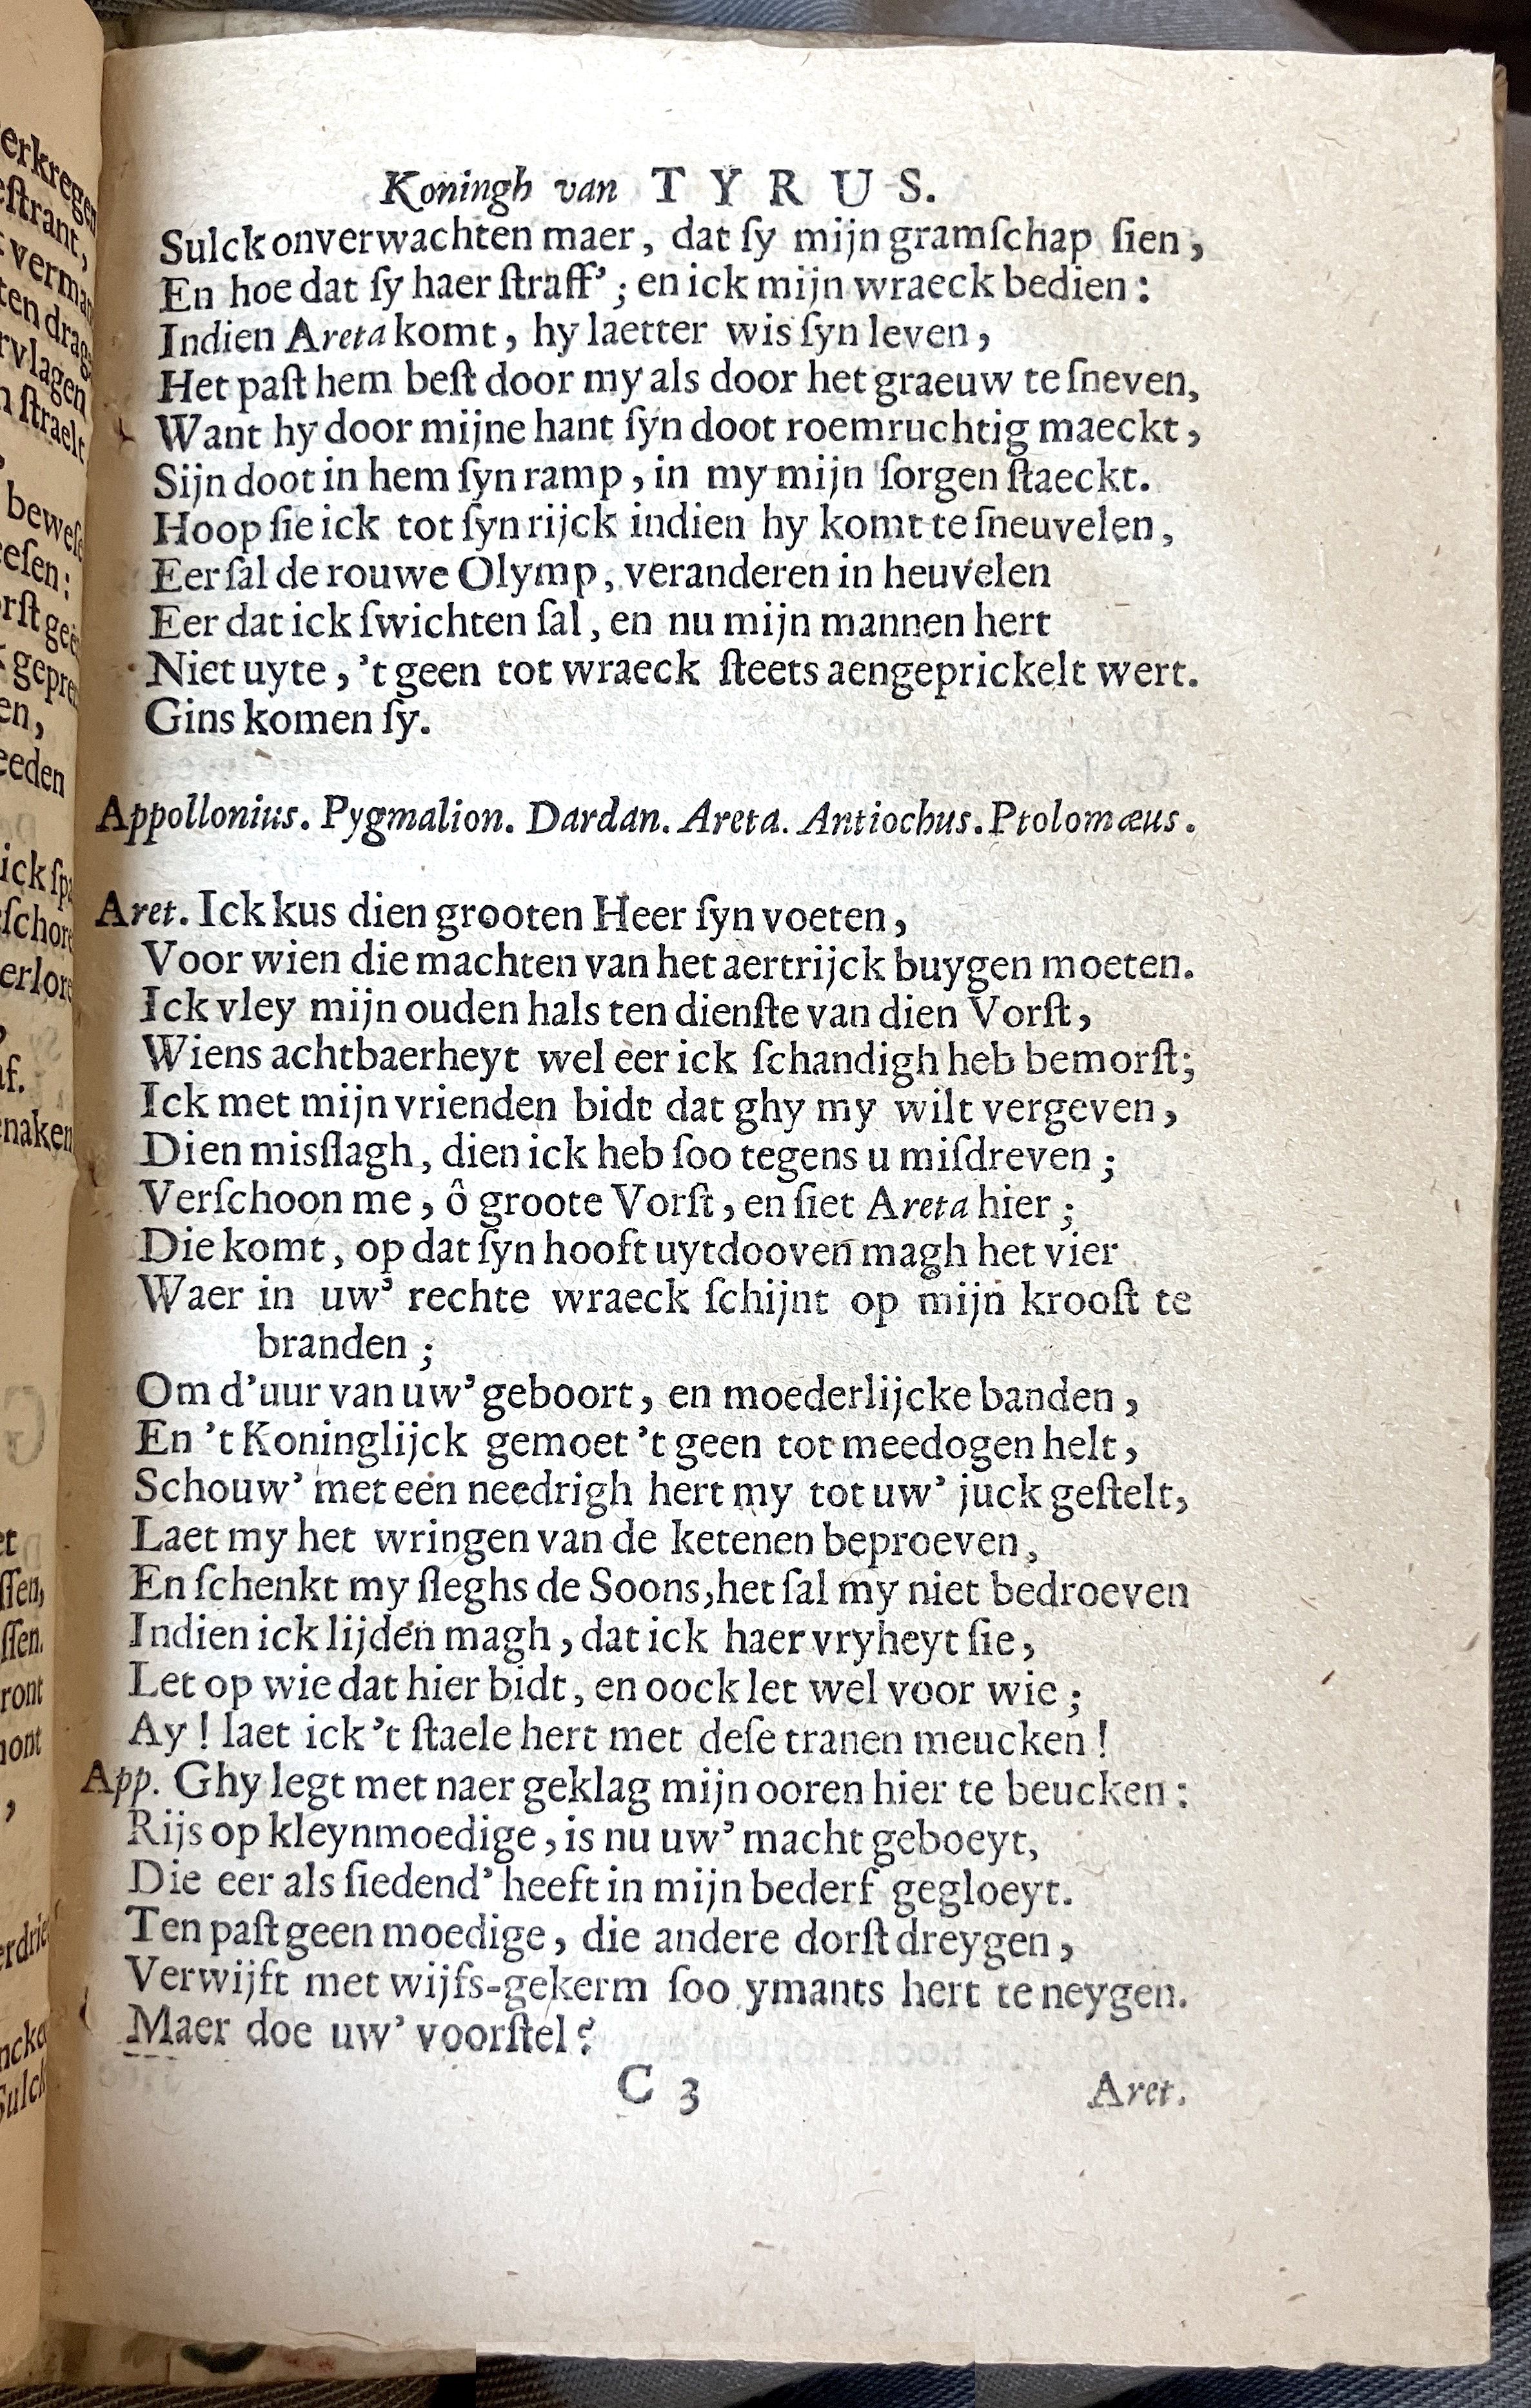 Koningh van TYRUS.
Sulck onverwachten maer, dat ſy mijn gramſchap ſien,
En hoe dat ſy haer ſtraff’; en ick mijn wraeck bedien:
Indien Areta komt, hy laetter wis ſyn leven,
Het paſt hem beſt door my als door het graeuw te ſneven,
Want hy door mijne hant ſyn doot roemruchtig maeckt,
Sijn doot in hem ſyn ramp, in my mijn ſorgen ſtaeckt.
Hoop ſie ick tot ſyn rijck indien hy komt te ſneuvelen,
Eer ſal de rouwe Olymp, veranderen in heuvelen
Eer dat ick ſwichten ſal, en nu mijn mannen hert
Niet uyte, ’t geen tot wraeck ſteets aengeprickelt wert.
Gins komen ſy.
Appollonius. Pygmalion. Dardan. Areta. Antiochus. Ptolomæus.
Aret. Ick kus dien grooten Heer ſyn voeten,
Voor wien die machten van het aertrijck buygen moeten.
Ick vley mijn ouden hals ten dienſte van dien Vorſt,
Wiens achtbaerheyt wel eer ick ſchandigh heb bemorſt;
Ick met mijn vrienden bidt dat ghy my wilt vergeven,
Dien misſlagh, dien ick heb ſoo tegens u miſdreven;
Verſchoon me, ô groote Vorſt, en ſiet Areta hier;
Die komt, op dat ſyn hooft uytdooven magh het vier
Waer in uw’ rechte wraeck ſchijnt op mijn krooſt te
branden;
Om d’uur van uw’ geboort, en moederlijcke banden,
En ’t Koninglijck gemoet ’t geen tot meedogen helt,
Schouw’ met een needrigh hert my tot uw’ juck geſtelt,
Laet my het wringen van de ketenen beproeven,
En ſchenkt my ſleghs de Soons, het ſal my niet bedroeven
Indien ick lijden magh, dat ick haer vryheyt ſie,
Let op wie dat hier bidt, en oock let wel voor wie;
Ay! laet ick ’t ſtaele hert met deſe tranen meucken!
App. Ghy legt met naer geklag mijn ooren hier te beucken:
Rijs op kleynmoedige, is nu uw’ macht geboeyt,
Die eer als ſiedend’ heeft in mijn bederf gegloeyt.
Ten paſt geen moedige, die andere dorſt dreygen,
Verwijft met wijfs-gekerm ſoo ymants hert te neygen.
Maer doe uw’ voorſtel?
C 3
Aret.